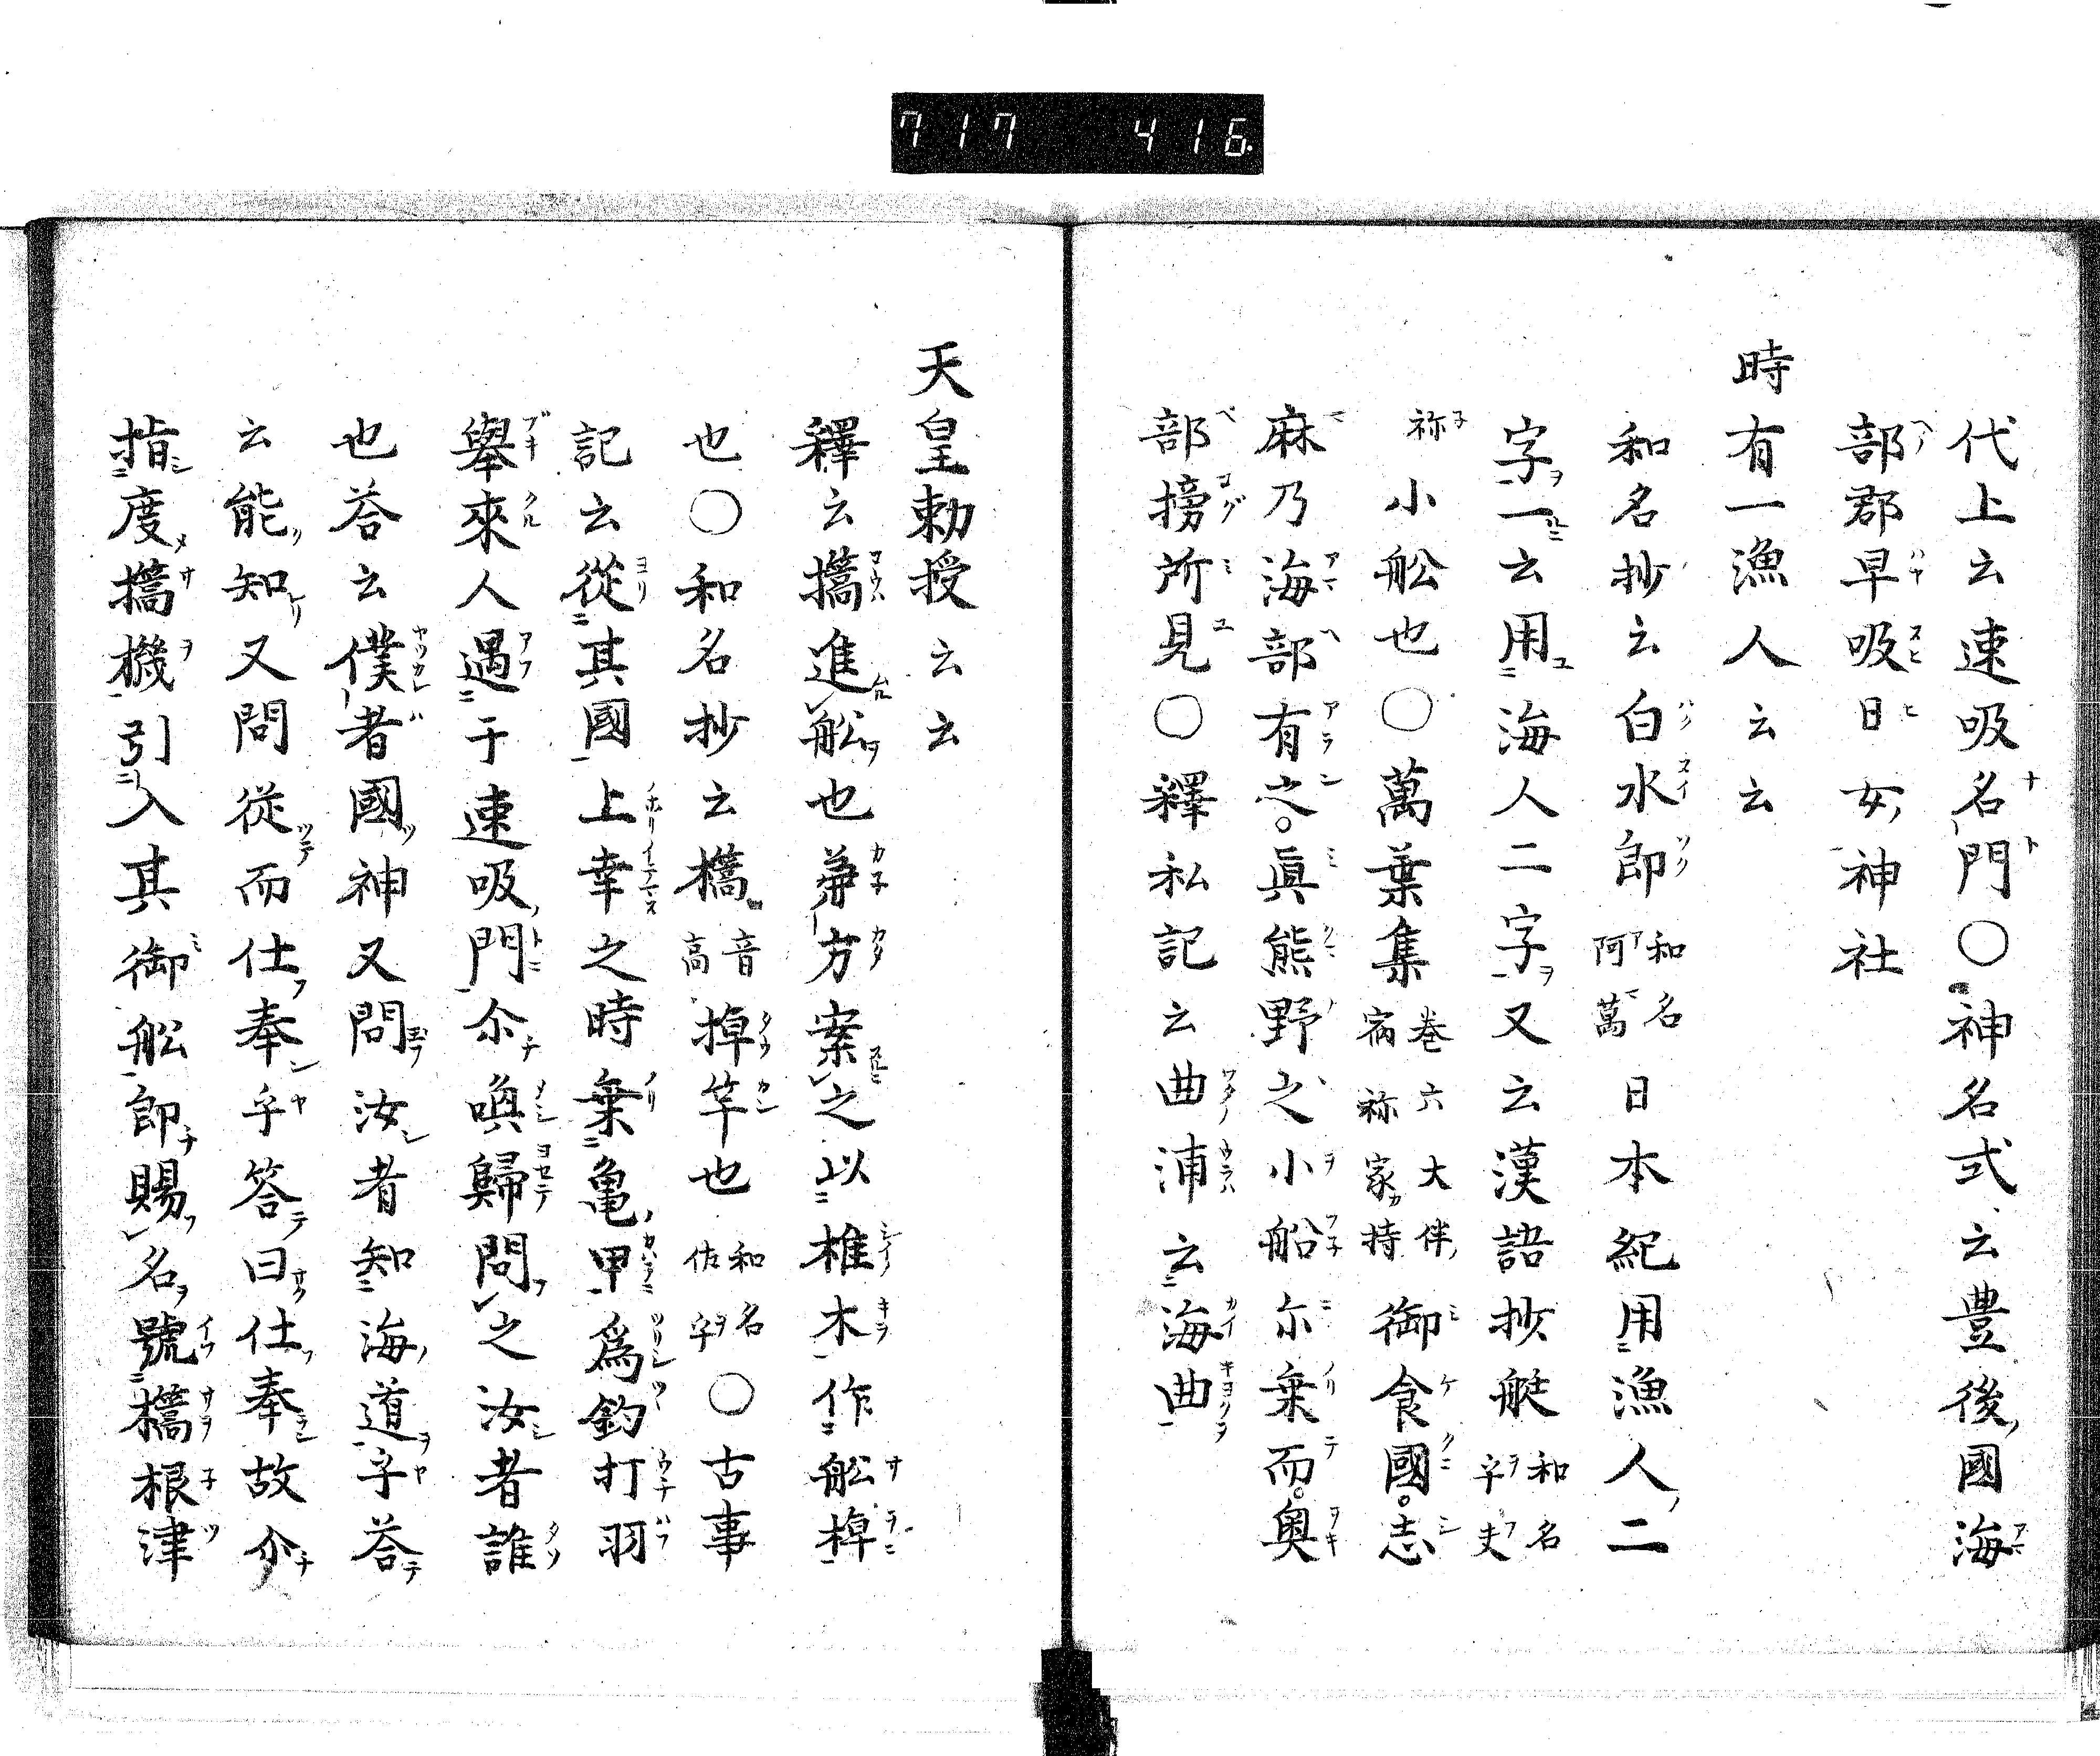 717 416
代上云速吸名門〇神名式云豊後國海
部郡早吸日女神社
時有一漁人云云
和名抄云白水郎和名阿萬日本紀用漁人二
字一云用海人二字又云漢語抄艇和名乎夫
祢小舩也〇萬葉集巻六大伴家持御食國志
麻乃海部有之眞熊野之小船尓乗而奥
部榜所見〇釋私記云曲浦云海曲
天皇勅授云云
釋云擕進舩也兼方案之以椎木作舩棹
也〇和名抄云檇音高棹竿也和名佐乎〇古事
記云從其國上幸之時乗亀甲爲釣打羽
擧來人遇于速吸門尒喚歸問之汝者誰
也荅云僕者國神又問汝者知海道乎荅
云能知又問從而仕奉乎答曰仕奉故尒
指度擕機引入其御舩即賜名號檇根津